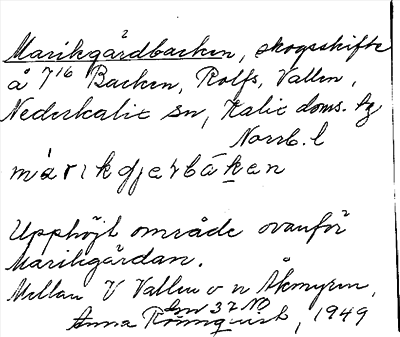 Marikgårdbacken, skogsskifte
å 7/16 Backen, Rolfs, Vallen,
Nederkalix sn, Kalix doms. tg
Norrb. l
márikgjeṛbāḳen
Upphöjt område ovanför
Marikgårdan.
Mellan V Vallen o v Åkmyren,
Anna Rönnquist, 1949